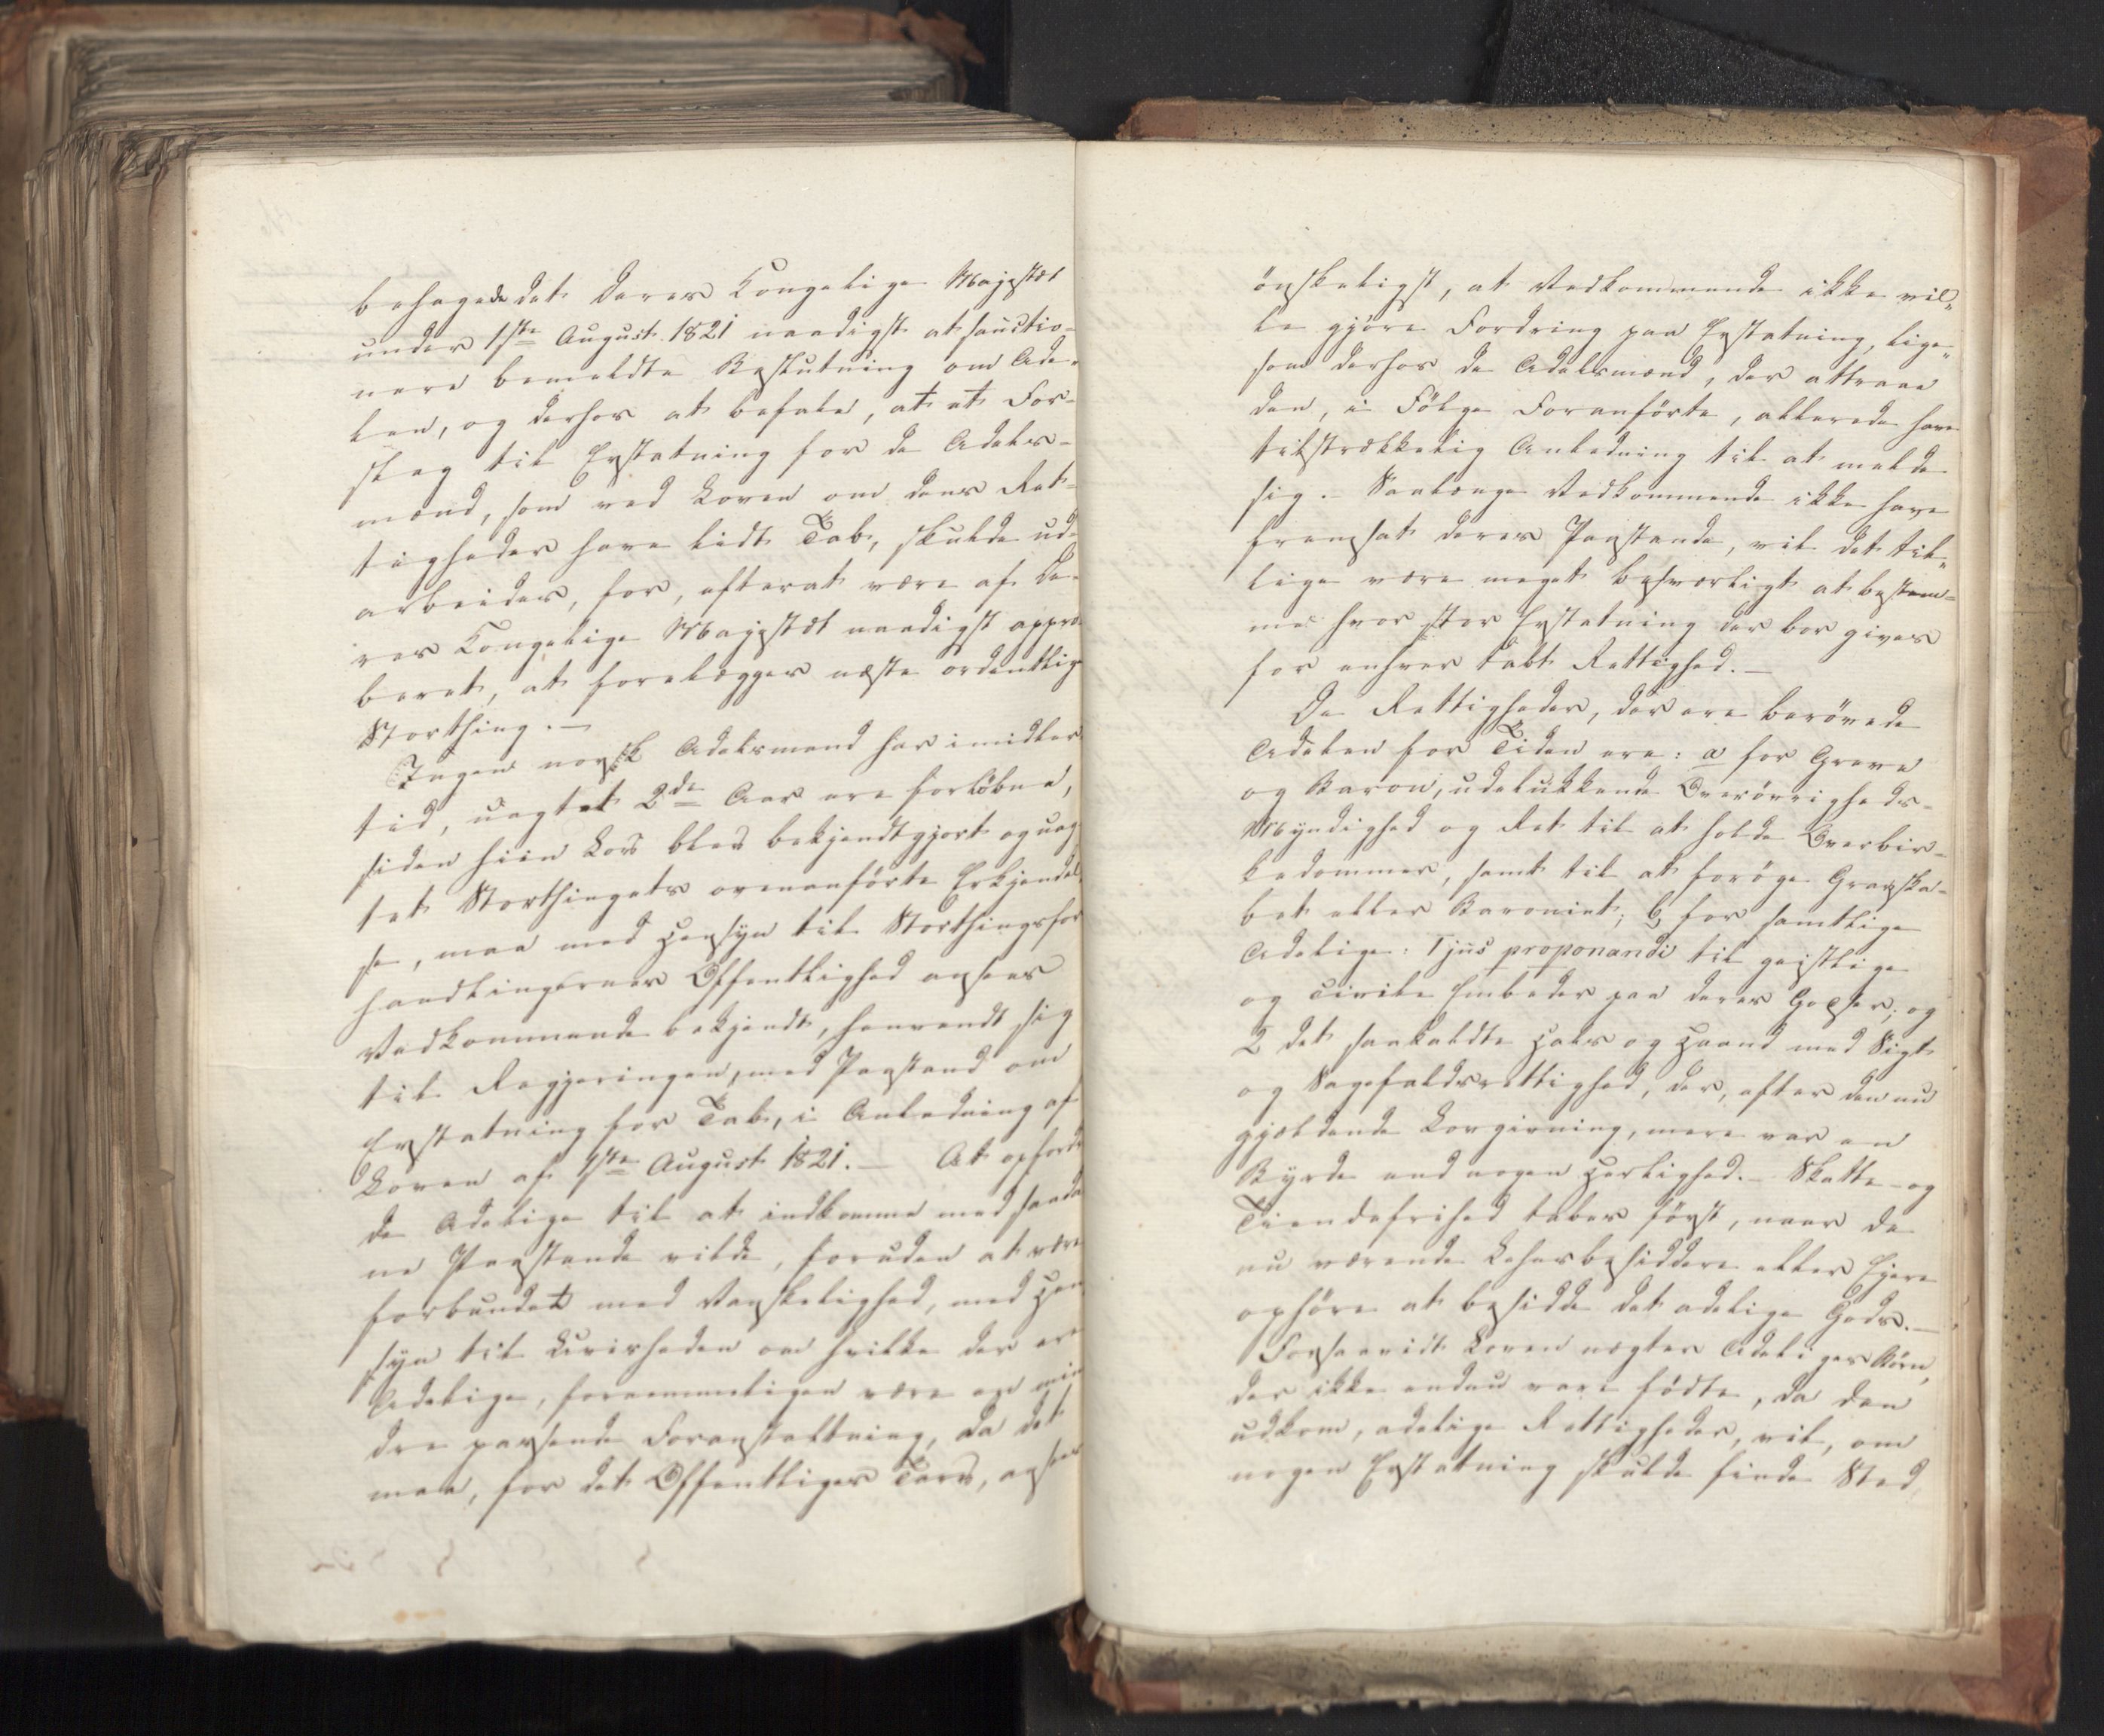 behagede det Deres Kongelige Majestæt
under 1ste August 1821 naadigst at sanctio-
nere bemeldte Beslutning om Ade-
len, og derhos at befale, at et For-
slag til Erstatning for de Adels-
mænd, som ved Loven om dens Ret-
tigheder have lidt Tab, skulde ud-
arbeides, for, efterat være af De-
res Kongelige Majestæt naadigst appro-
beret, at forelægges næste ordentlige
Storthing. —
Ingen norsk Adelsmand har imidler-
tid, uagtet 2de Aar ere forløbne,
siden hiin Lov blev bekjendtgjort og uag-
tet Storthingets ovenanførte Erkjendel-
se, maa med Hensyn til Storthingsfor-
handlingernes Offentlighed ansees
Vedkommende bekjendt, henvendt sig
til Regjeringen, med Paastand om
Erstatning for Tab, i Anledning af
Loven af 1ste August 1821. — At opfordre
de Adelige til at indkomme med saada-
ne Paastande vilde, foruden at være
forbundet med Vanskelighed, med Hen-
syn til Uvisheden om hvilke der ere
Adelige, fornemmeligen være en min-
dre passende Foranstaltning, da det
maa, for det Offentliges Tarv, ansees
ønskeligst, at Vedkommende ikke vil-
le gjøre Fordring paa Erstatning, lige-
som derhos de Adelsmænd, der attraae
den, i Følge Foranførte, allerede have
tilstrækkelig Anledning til at melde
sig. – Saalænge Vedkommende ikke have
fremsat deres Paastande, vil det til-
lige være meget besværligt at bestem-
me hvor stor Erstatning der bør gives
for enhver tabt Rettighed. —
De Rettigheder, der ere berøvede
Adelen for Tiden ere: a for Greve
og Baron, udelukkende Overøvrigheds-
Myndighed og Ret til at holde Overbir-
kedommer, samt til at forøge Grevska-
bet eller Baroniet; b, for samtlige
Adelige: 1 jus proponandi til geistlige
og civile Embeder paa deres Godser; og
2 det saakaldte Hals og Haand med Sigt
og Sagefaldsrettighed, der, efter den nu
gjældende Lovgivning, mere var en
Byrde end nogen Herlighed. – Skatte- og
Tiendefrihed tabes først, naar de
nu værende Lehnsbesiddere eller Eiere
ophøre at besidde det adelige Gods. —
Forsaavidt Loven nægter Adeliges Børn,
der ikke endnu vare fødte, da den
udkom, adelige Rettigheder, vil, om
nogen Erstatning skulde finde Sted,